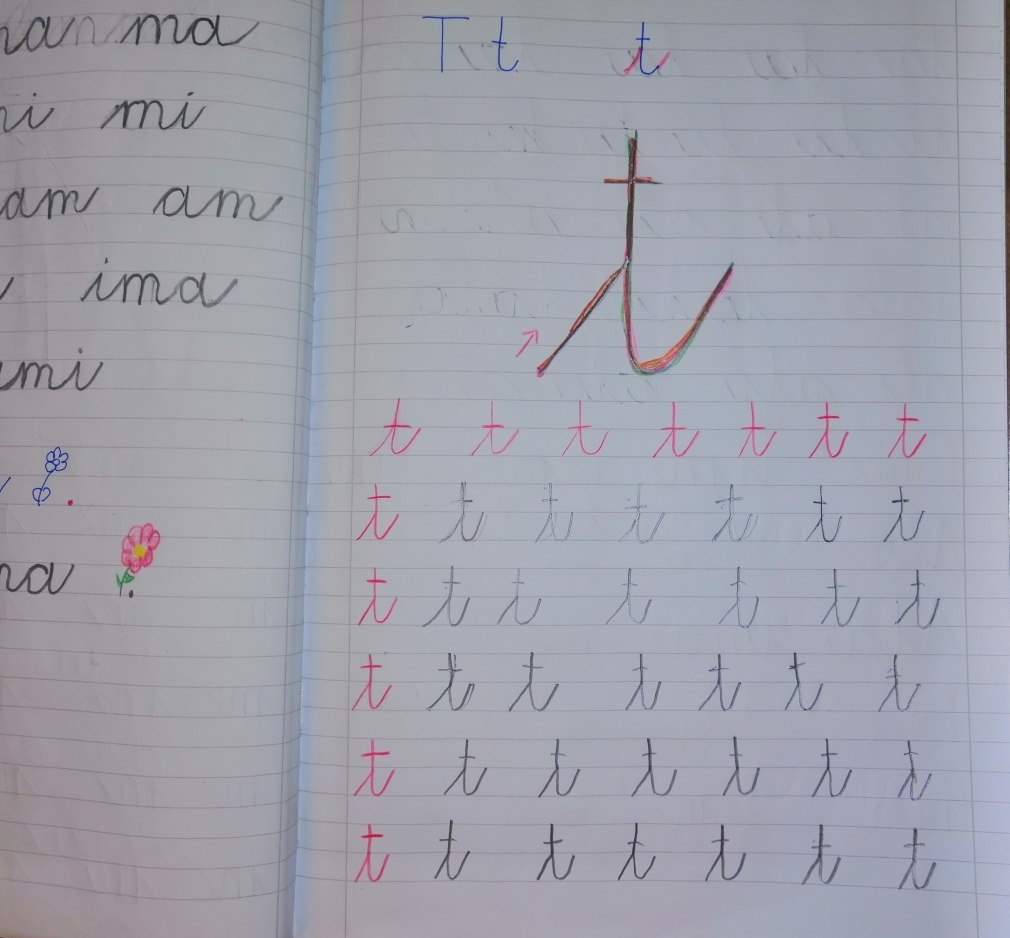 ma
mi
am am
ima
mi
T t t
t
t t t t t t t
t t t t t t t
t t t t t t t
t t t t t t t
t t t t t t t
t t t t t t t